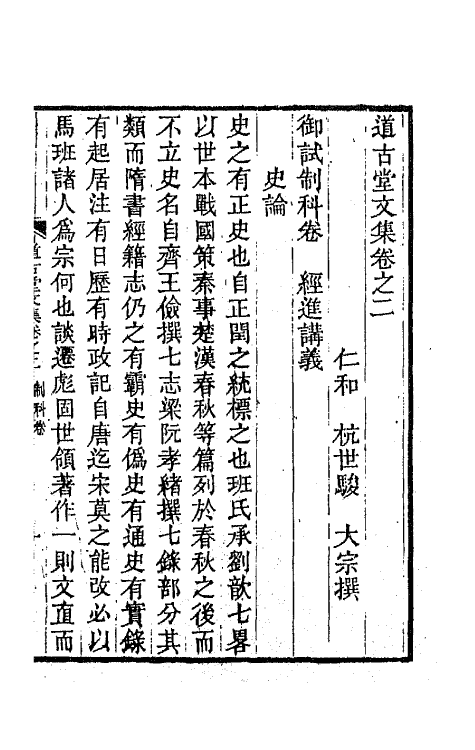 道古堂文集卷之二
仁和 杭世駿 大宗撰
御試制科卷 經進講義
史論
史之有正史也自正閏之統標之也班氏承劉歆七畧
以世本戰國策秦事楚漢春秋等篇列於春秋之後而
不立史名自齊王儉撰七志梁阮孝緒撰七錄部分其
類而隋書經籍志仍之有霸史有僞史有通史有實錄
有起居注有日歷有時政記自唐迄宋莫之能改必以
馬班諸人爲宗何也談遷彪固世領著作一則文直而
道古堂文集卷之二 制科卷 一